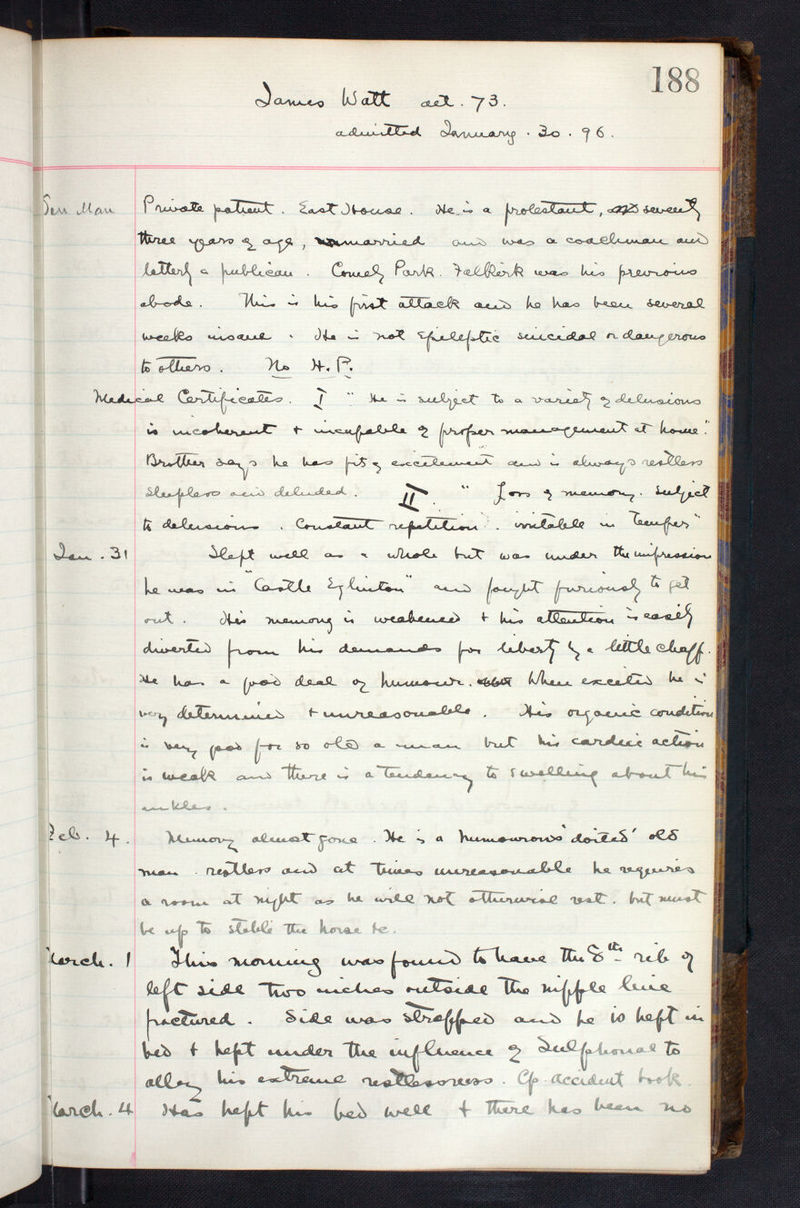 188
James Watt aet. 73.
admitted January. 30. 96.
Sen Man Private patient. East House. He is a protestant, seventy
three years of age, married and was a coachman and
latterly a publican. Comely Park. Falkirk was his previous
abode. This is his first attack and he has been several
weeks insane. He is not Epileptic suicidal or dangerous
to others. No H.P.
Medical Certificates. I "He is subject to a variety of delusions
is incoherent + incapable of proper management at home."
Brother says he has fits of excitement and is always restless
sleepless and deluded. II. "Loss of memory. Subject
to delusions. Constant repetition. irritable in temper"
Jan. 31 Slept well as a whole but was under the impression
he was in "Castle Eglinton" and fought furiously to get
out. His memory is weakened + his attention is easily
diverted from his demands for liberty by a little chaff.
He has a good deal of humour. When excited he is
very determined + unreasonable. His organic condition
is very good for so old a man but his cardiac action
is weak and there is a tendency to swelling about his
ankles.
Feb. 4. Memory almost gone. He is a humourous 'doited' old
man. restless and at times unreasonable he requires
a room at night as he will not otherwise rest. but must
be up to stable the horse &c.
March. 1 This morning was found to have the 8th rib of
left side two inches outside the nipple line
fractured. Side was strapped and he is kept in
bed + kept under the influence of Sulphonal to
allay his extreme restlessness. Cp. accident book.
March. 4 Has kept his bed well + there has been no